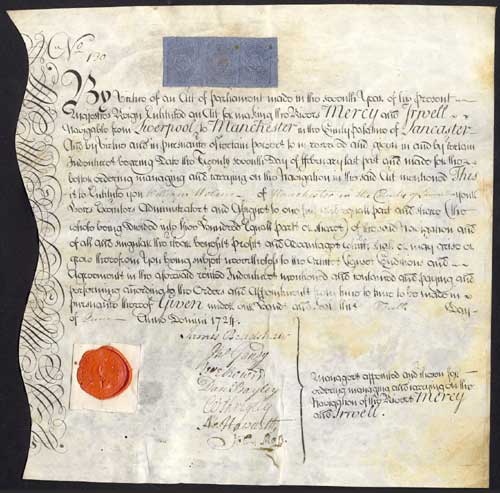 No 130
By Virtue of an Act of parliament made in the seventh Year of his present
Majesties Reign Entituled an Act for making the Rivers Mercy and Irwell
Navigable from Liverpool to Manchester in the County palatine of Lancaster
And by virtue and in pursuance of certain powers to in and by certain
Indentures bearing Date the Twenty seventh Day of ffebruary last past and made for the
better ordering managing and carrying on the Navigation in the said Act mentioned This
is to Entitle you William of Manchester in the County of your
Heirs Executors Administrators and Assignes to one full and equall part and share (the
whole being Divided into five Hundred Equall parts or shares) of the said Navigation and
of all and singular the Stock benefit Profits and Advantages which shall or may arise or
grow therefrom You being subject nevertheless to the and
Agreements in the aforesaid Indentures mentioned and contained and paying and
performing according to the Orders and Appointments from time to time to be made in
pursuance thereof Given under our Hands and Seal this Day
of Anno Domini 1724.
James Bradshaw
Jos Howorth
Dan Bayley
Managers appointed and chosen for
ordering managing and carrying on the
Navigation of the Rivers Mercy
and Irwell.